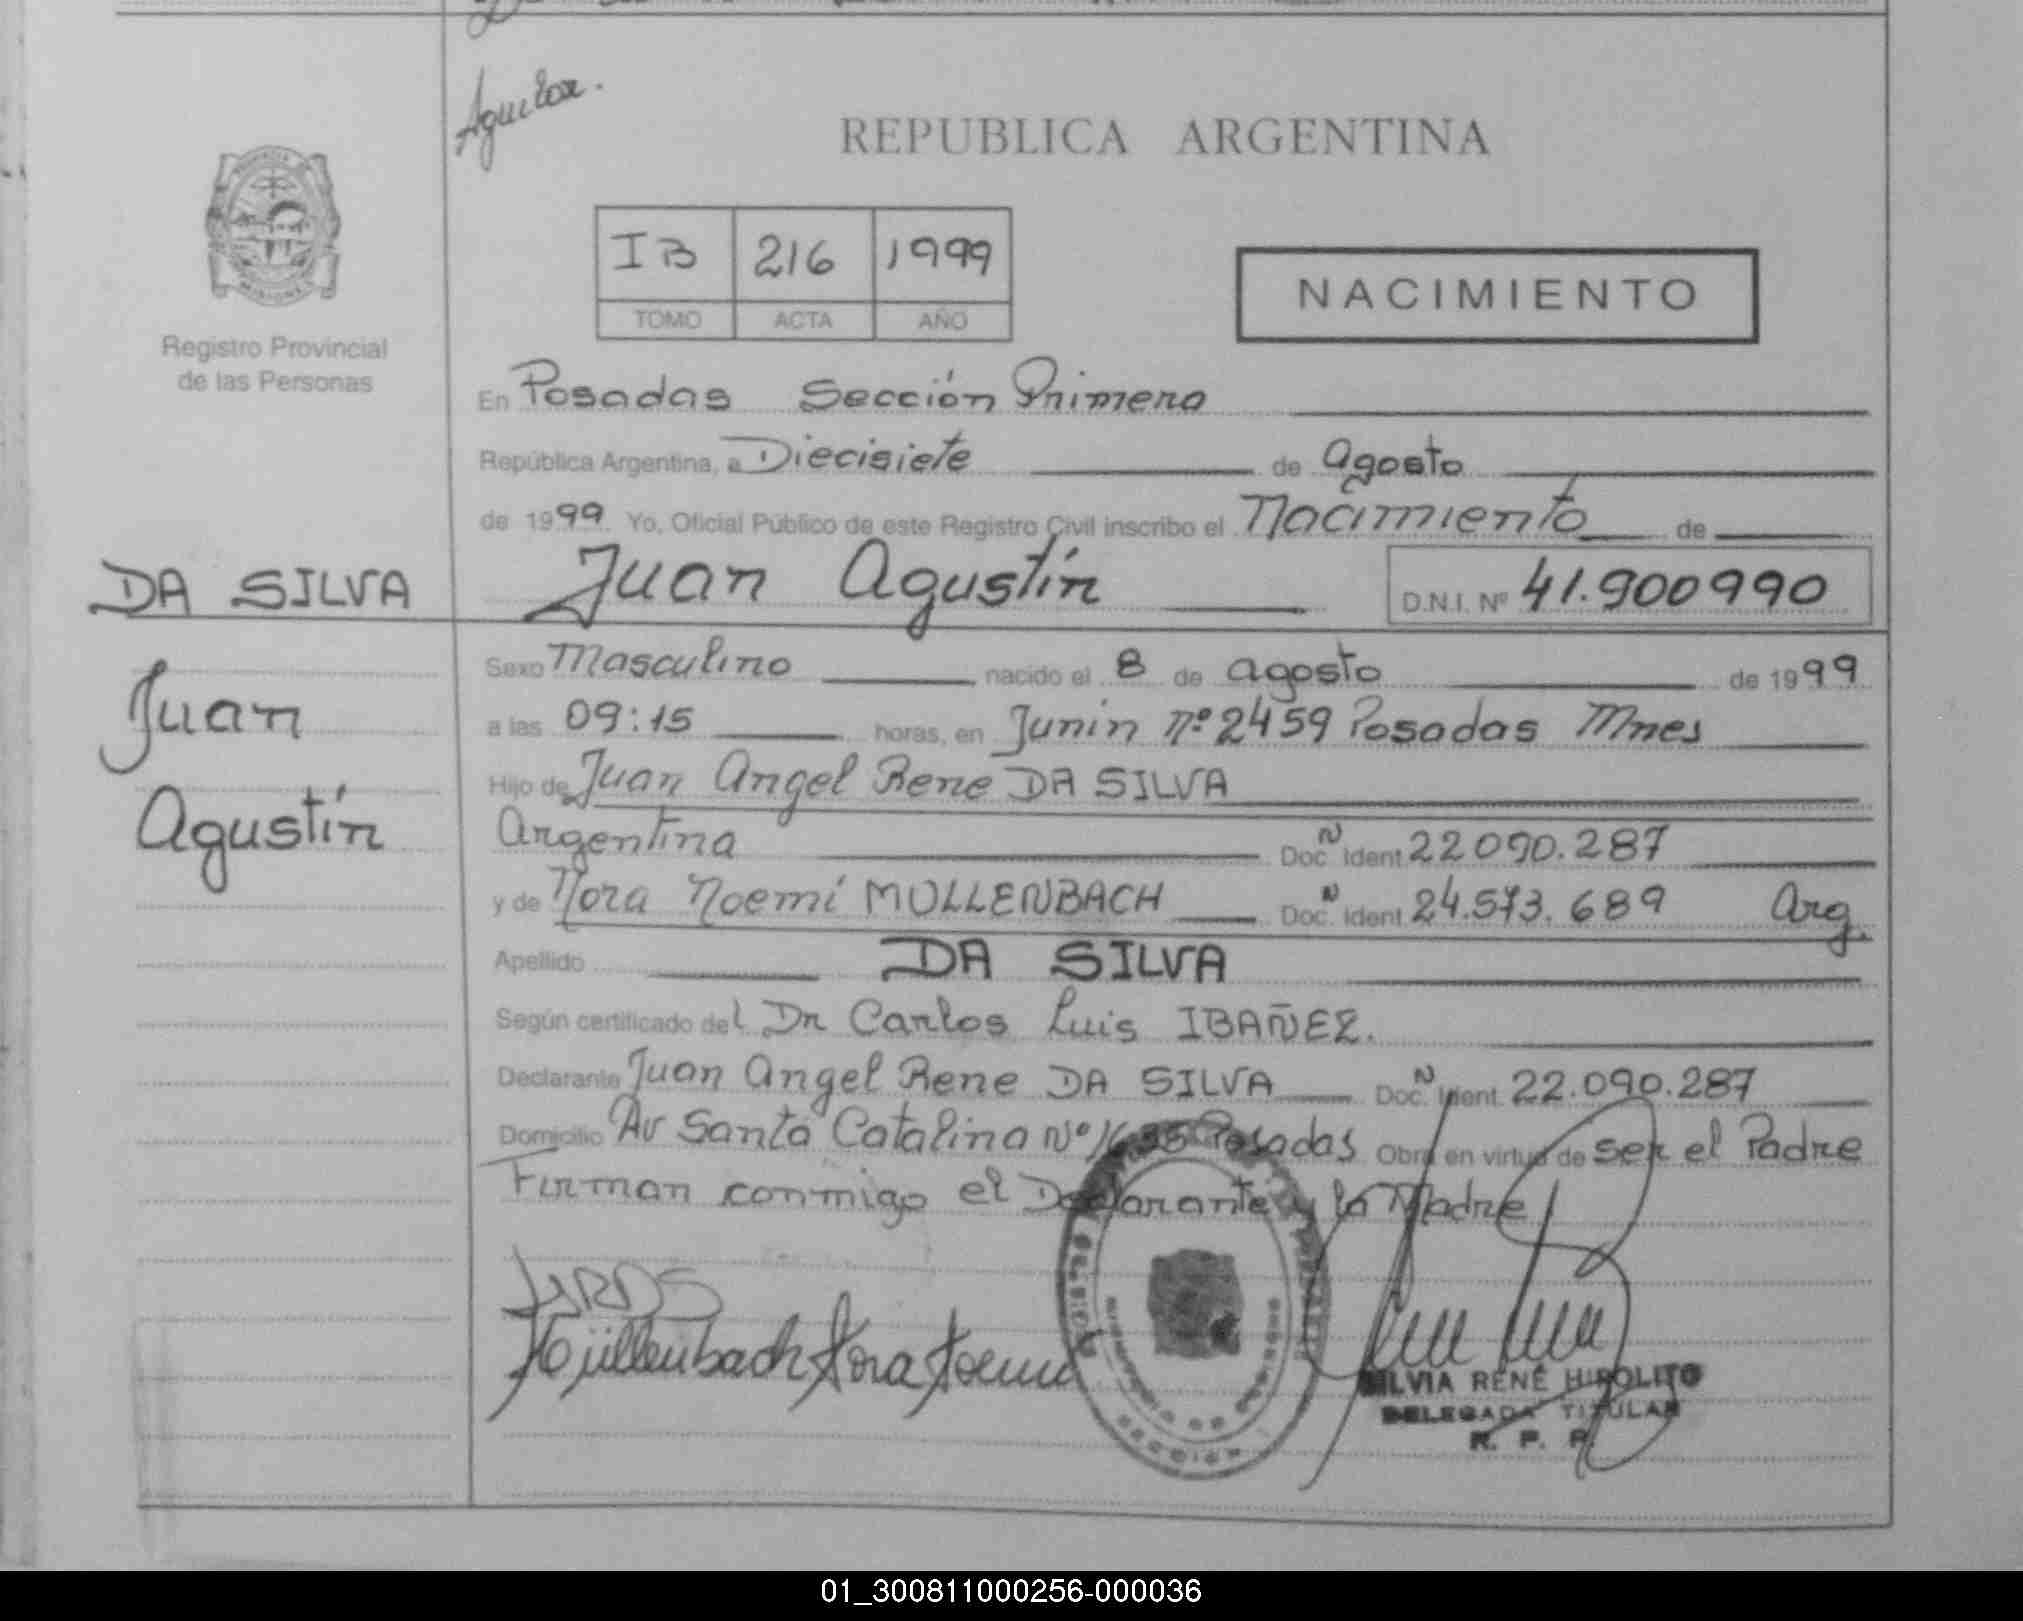 Aguilar.
REPUBLICA ARGENTINA
IB 216 1999
TOMO ACTA AÑO
NACIMIENTO
MISIONES
Registro Provincial
de las Personas
En Posadas Sección Primera
República Argentina, a Diecisiete de Agosto
de 1999 Yo, Oficial Público de este Registro Civil inscribo el Nacimiento de
DA SILVA Juan Agustín D.N.I. Nº 41.900990
Juan
Agustín
Sexo Masculino nacido el 8 de agosto de 1999
a las 09:15 horas, en Junin Nº 2459 Posadas Mnes
Hijo de Juan Angel Rene DA SILVA
Argentina Doc. N Ident 22090.287
y de Nora Noemí MULLENBACH Doc. N Ident 24.573.689 Arg.
Apellido DA SILVA
Según certificado del Dr Carlos Luis IBAÑEZ.
Declarante Juan Angel Rene DA SILVA Doc. N Ident. 22.090.287
Domicilio Av Santa Catalina Nº Posadas Obra en virtud de ser el Padre
Firman conmigo el Declarante y la Madre
JARDS
Müllenbach Nora Noemi
SILVIA RENÉ HIPOLITO
DELEGADA TITULAR
R. P. P.
01_300811000256-000036